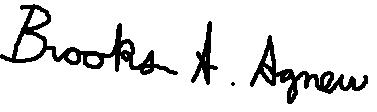 Brooks A. Agnew